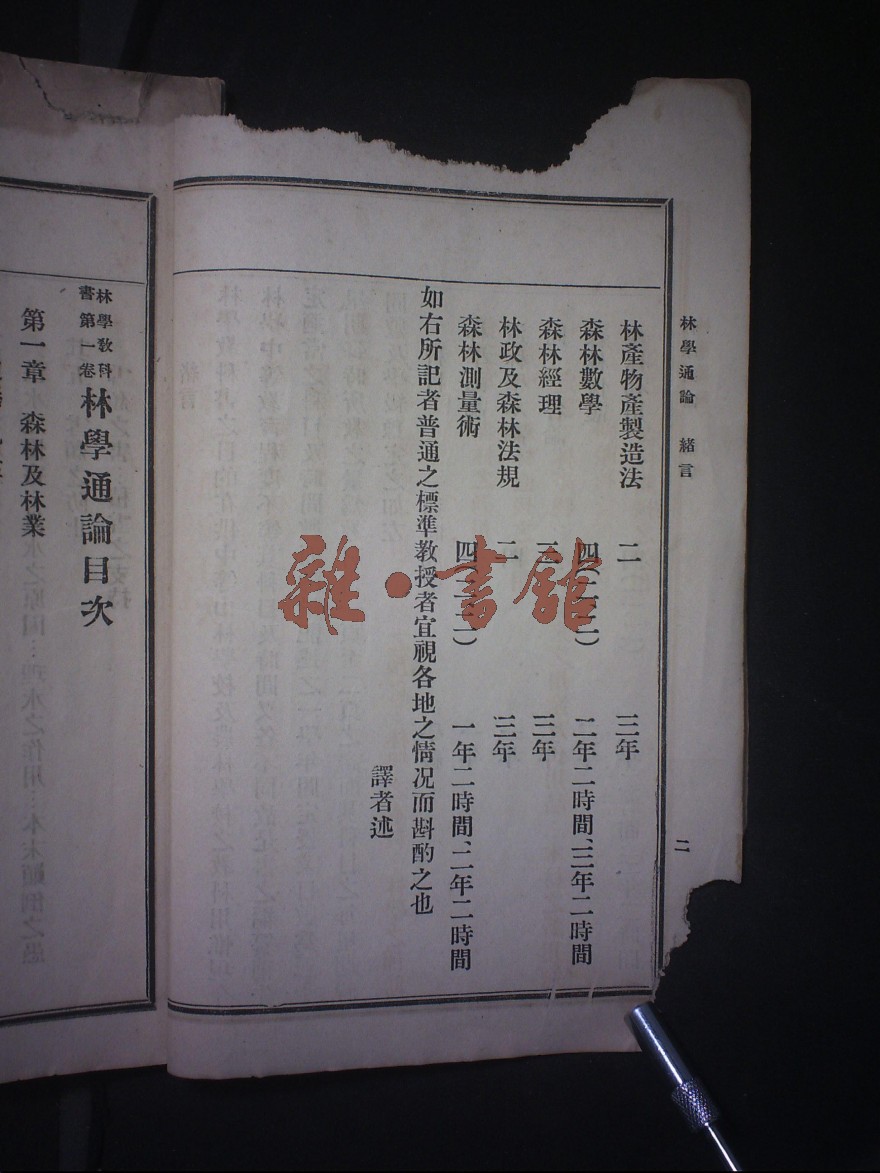 林學通論 緒言 二
林產物產製造法 二 三年
森林數學 四(二、二) 二年二時間、三年二時間
森林經理 三 三年
林政及森林法規 二 三年
森林測量術 四(二、二) 一年二時間、二年二時間
如右所記者普通之標準教授者宜視各地之情況而斟酌之也
譯者述
林學教科書第一卷 林學通論目次
第一章 森林及林業
雜·書館